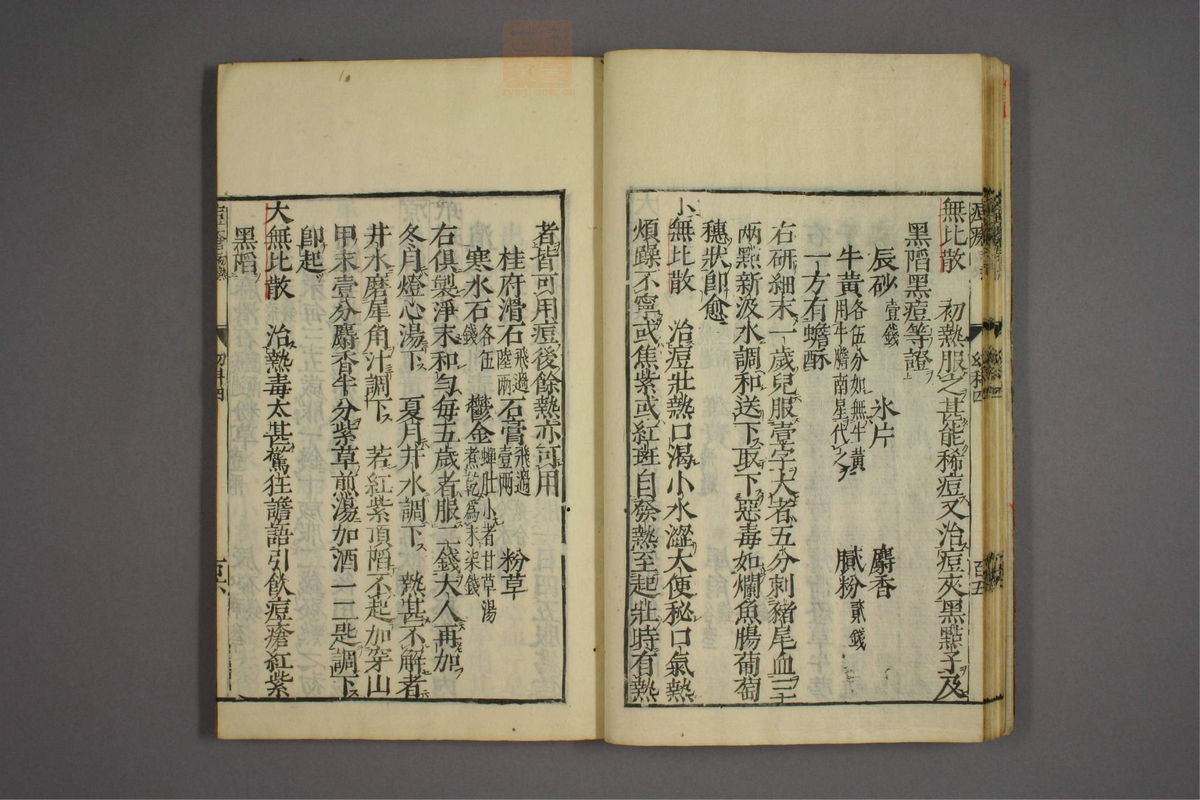 無比散　初熱服之甚能稀痘又治痘夾黑點子及
黑陷黑痘等證
辰砂壹錢　氷片　麝香
牛黃各伍分如無牛黃用牛膽南星代之　膩粉貳錢
一方有蟾酥
右研細末一歲兒服壹字大者五分刺豬尾血三
兩點新汲水調和送下取下惡毒如爛魚腸葡萄
穗狀卽愈
小無比散　治痘壯熱口渴小水澀大便秘口氣熱
煩躁不寧或焦紫或紅斑自發熱至起壯時有熱
者皆可用痘後餘熱亦可用
桂府滑石飛過陸兩　石膏飛過壹兩　粉草
寒水石各伍錢　鬱金蟬肚小者甘草湯煮乾爲末柒錢
右俱製淨末和勻每五歲者服二錢大人再加
冬月燈心湯下　夏月井水調下　熱甚不解者
井水磨犀角汁調下　若紅紫頂陷不起加穿山
甲末壹分麝香半分紫草煎湯加酒一二匙調下
卽起
大無比散　治熱毒太甚驚狂譫語引飲痘瘡紅紫
黑陷